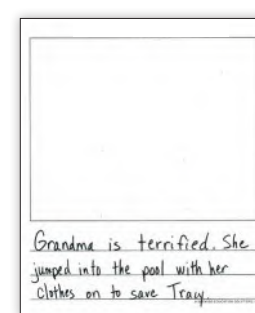 Grandma is terrified. She
jumped into the pool with her
clothes on to save Tracy.